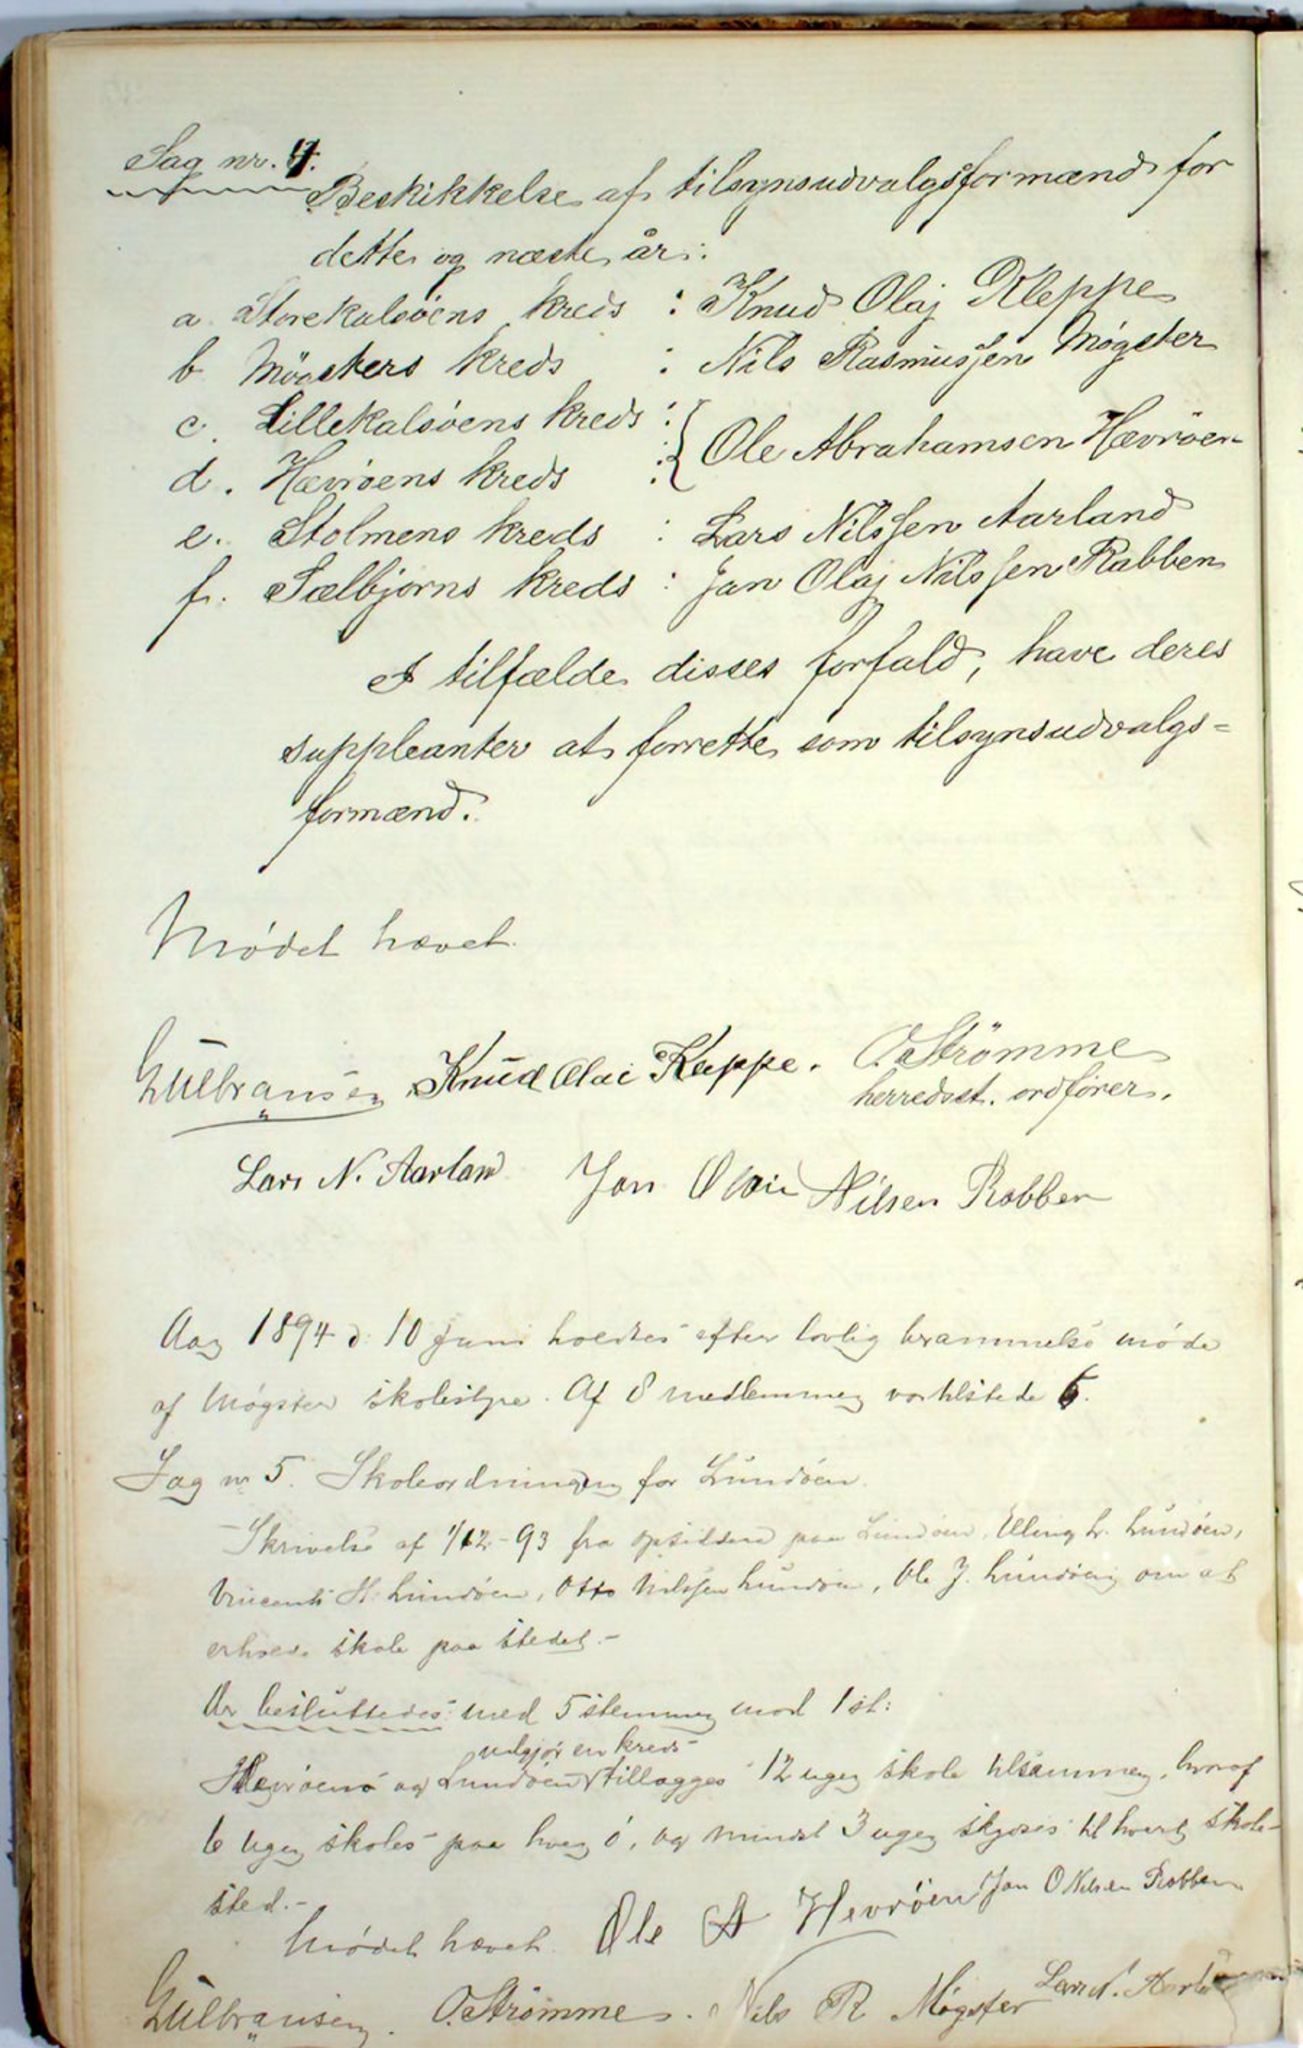 Sag nr. 4.
Beskikkelse af tilsynsudvalgsformænd for
dette og næste år:
a. Storekalsöens kreds : Knud Olaj Kleppe
b Mögsters kreds : Nils Rasmussen Møgster
c. Lillekalsöens kreds :
d. Hævröens kreds : Ole Abrahamsen Hævröen
e. Stolmens kreds : Lars Nilssen Aarland
f. Sælbjørns kreds : Jan Olaj Nilssen Rabben
I tilfælde disses forfald, have deres
suppleanter at forrette som tilsynsudvalgs=
formænd.
Mødet hævet.
Gulbransen Knud Olai Kleppe. O. Strömme
herredsst. ordfører.
Lars N. Aarland Jan Olai Nilsen Rabben
Aar 1894 d. 10 juni holdtes efter lovlig berammelse møde
af Møgster skolestyre. Af 8 medlemmer var tilstede 6.
Sag nr 5. Skoleordningen for Lundöen.
Skrivelse af 1/12-93 fra opsiddere paa Lundöen, Elling H. Lundöen,
Vincents H. Lundöen, Otto Nilssen Lundöen, Ole J. Lundöen om at
erholde skole paa stedet.-
Der besluttedes med 5 stemmer mod 1 st:
udgjör en kreds
Hævröens og Lundöen tillægges 12 uger skole tilsammen, hvoraf
6 uger skoles paa hver ö, og mindst 3 uger skydses til hvert skole-
sted.-
Mödet hævet. Ole A Hevröen Jan O Nilsen Rabben
Gulbransen. O. Strömme. Nils R. Møgster Lars N. Aarland